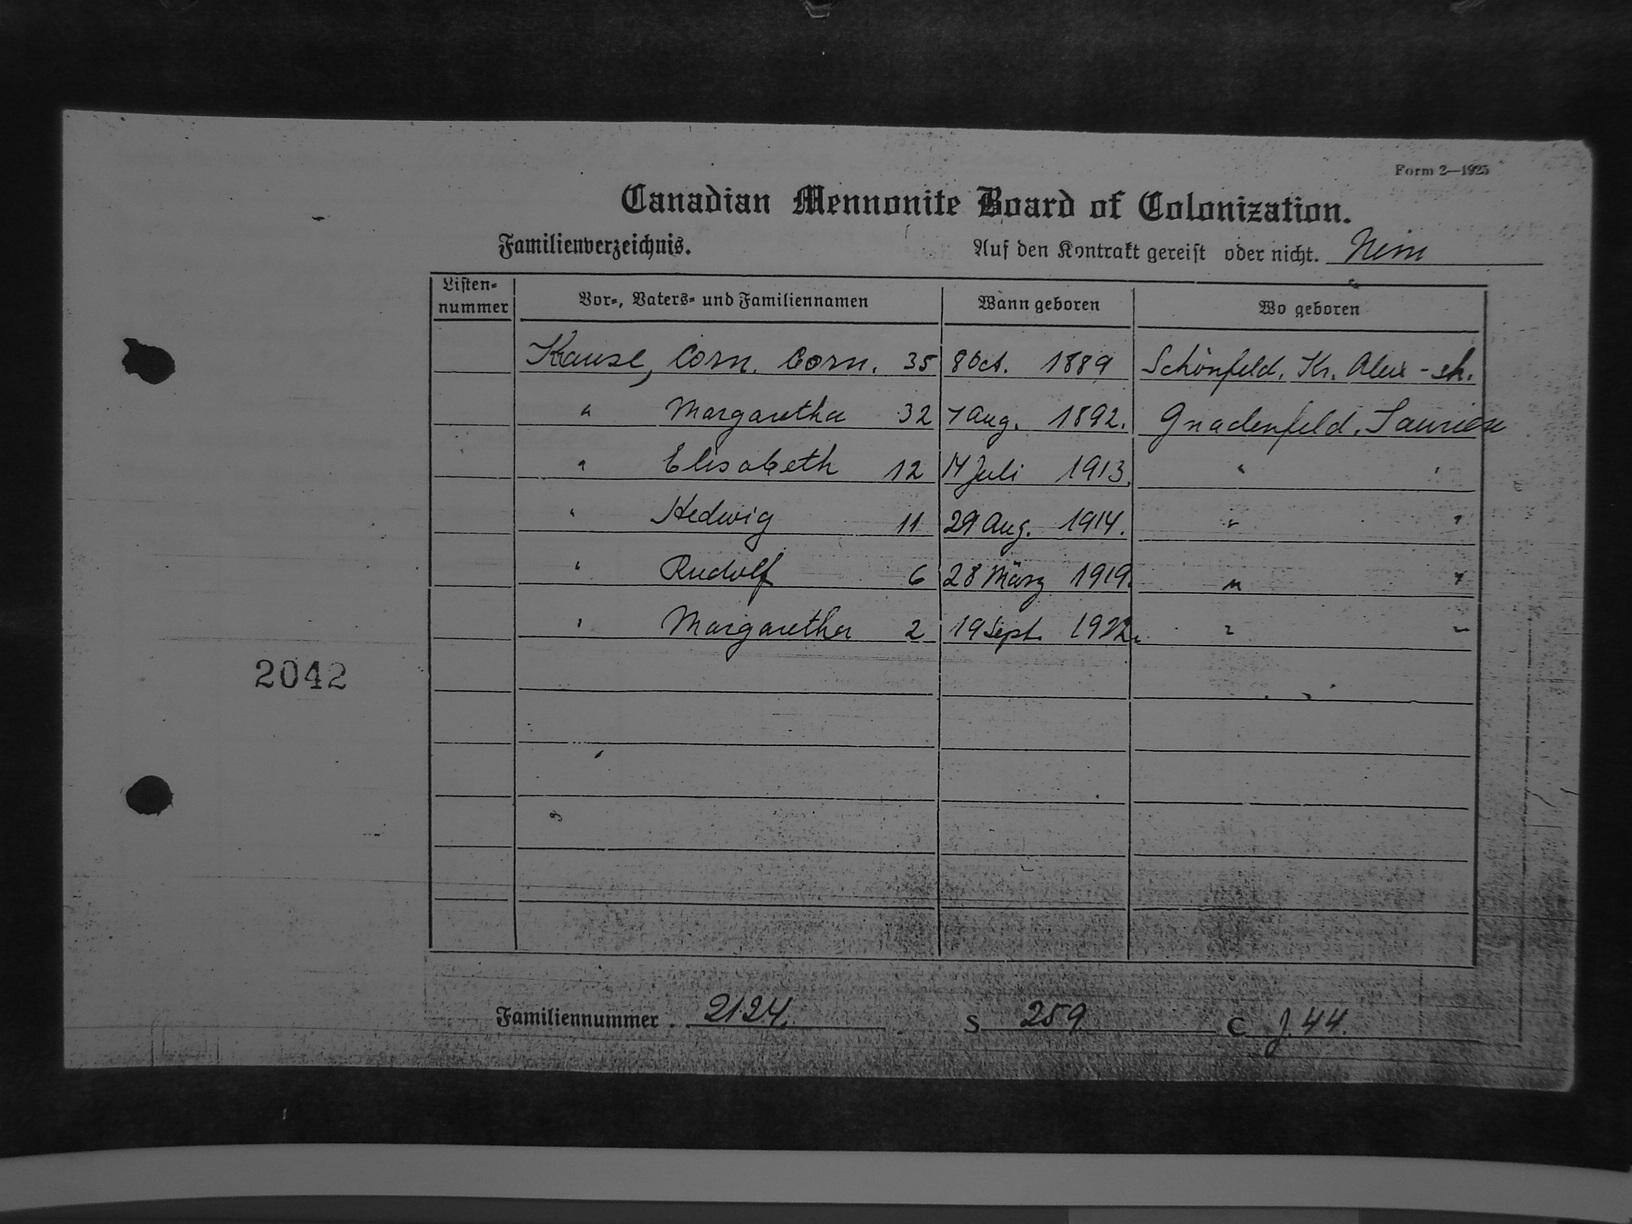 Form 2—1925
Canadian Mennonite Board of Colonization.
Familienverzeichnis. Auf den Kontrakt gereist oder nicht. Nein
Listen-nummer Vor-, Vaters- und Familiennamen Wann geboren Wo geboren
Krause, Corn. Corn. 35 8 Oct. 1889 Schönfeld, Kr. Alex-sk.
" Margaretha 32 7 Aug. 1892. Gnadenfeld, Taurien
" Elisabeth 12 14 Juli 1913. " "
" Hedwig 11 29 Aug. 1914. " "
" Rudolf 6 28 März 1919. " "
" Margaretha 2 19 Sept. 1922. " "
2042
Familiennummer. 2124. S 259 C J. 44.